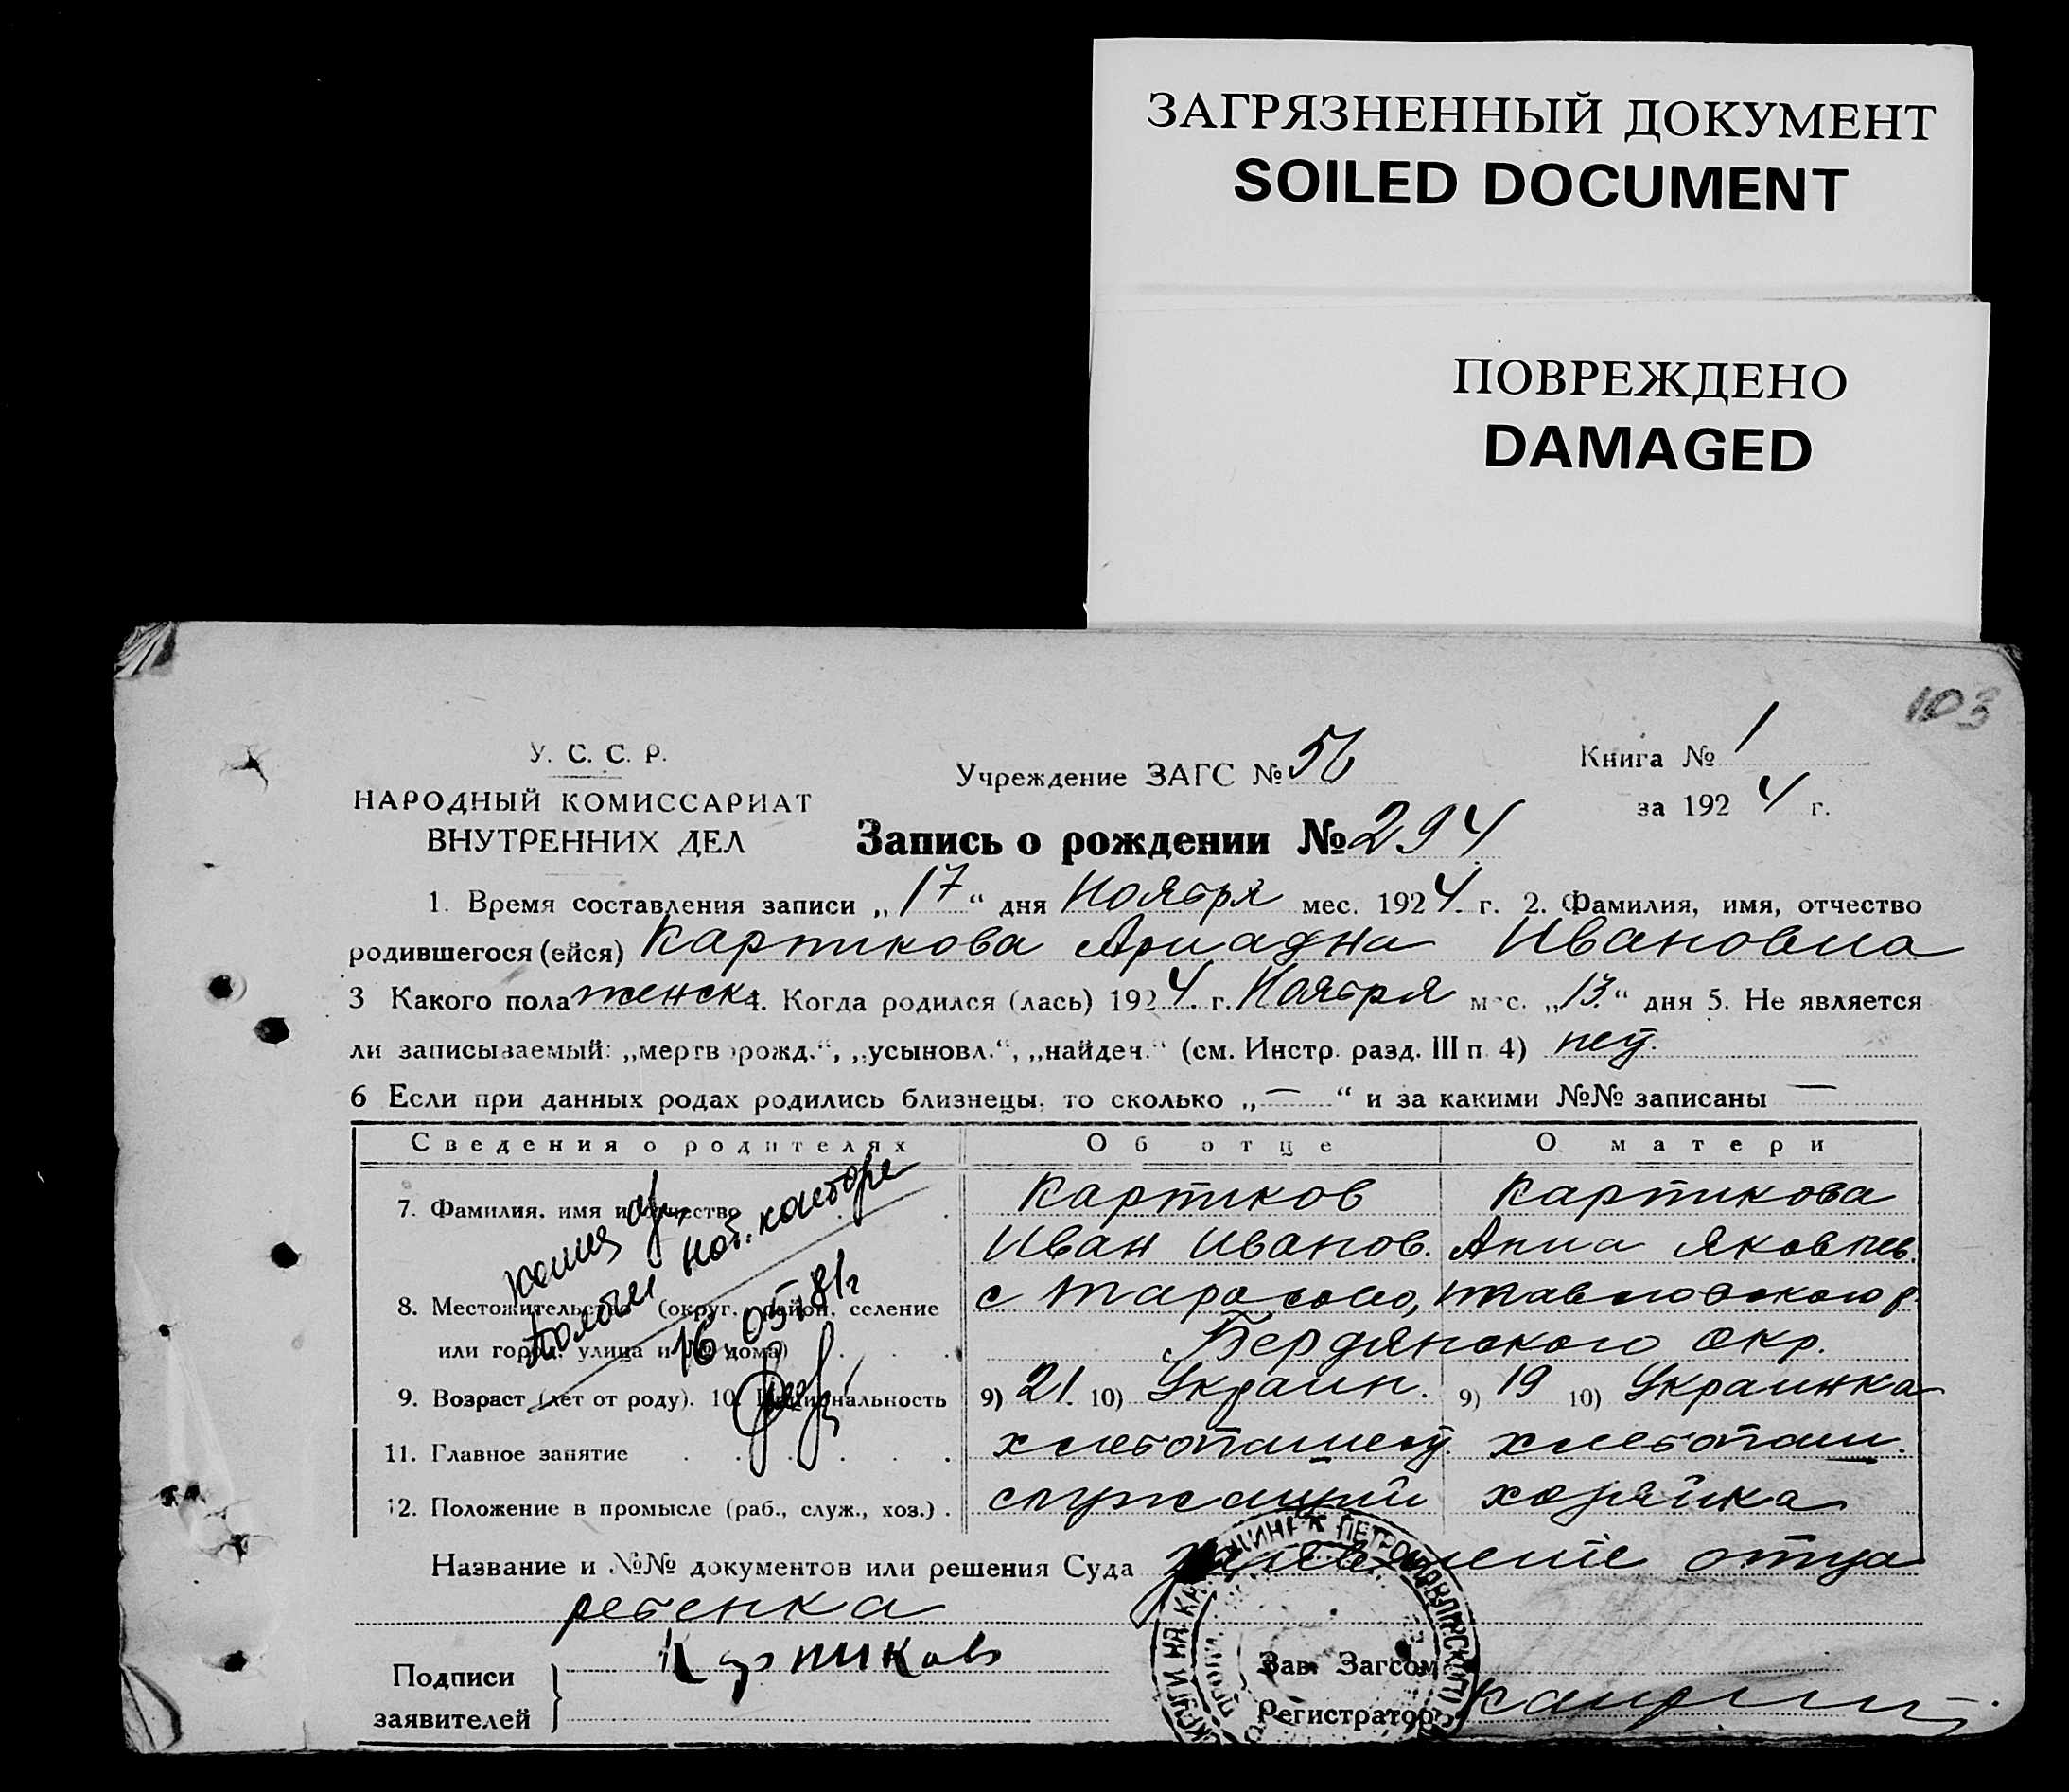 ЗАГРЯЗНЕННЫЙ ДОКУМЕНТ
SOILED DOCUMENT
ПОВРЕЖДЕНО
DAMAGED
103
У. С. С. Р.
НАРОДНЫЙ КОМИССАРИАТ
ВНУТРЕННИХ ДЕЛ
Учреждение ЗАГС № 56
Книга № 1
за 1924 г.
Запись о рождении № 294
1. Время составления записи „17“ дня Ноября мес. 1924. г. 2. Фамилия, имя, отчество
родившегося (ейся) Картикова Ариадна Ивановна
3 Какого пола женск 4. Когда родился (лась) 1924. г. Ноября мес. „13.“ дня 5. Не является
ли записываемый: „мертворожд.“, „усыновл.“, „найден.“ (см. Инстр. разд. III п. 4) нет.
6 Если при данных родах родились близнецы, то сколько „—“ и за какими №№ записаны —
Сведения о родителях Об отце О матери
7. Фамилия, имя и отчество Картиков Картикова
Иван Иванов. Анна Яковлев.
8. Местожительство (округ, район, селение с
или город, улица и № дома) Бердянского окр.
9. Возраст (лет от роду). 10. Национальность 9) 21. 10) Украин. 9) 19 10) Украинка
11. Главное занятие хлебопашест. хлебопаш.
12. Положение в промысле (раб., служ., хоз.) служащий хозяйка
нот. конторе
16.05.81г
Название и №№ документов или решения Суда заявление отца
ребенка
Подписи
заявителей
Картиков
Зав. Загсом
Регистратор